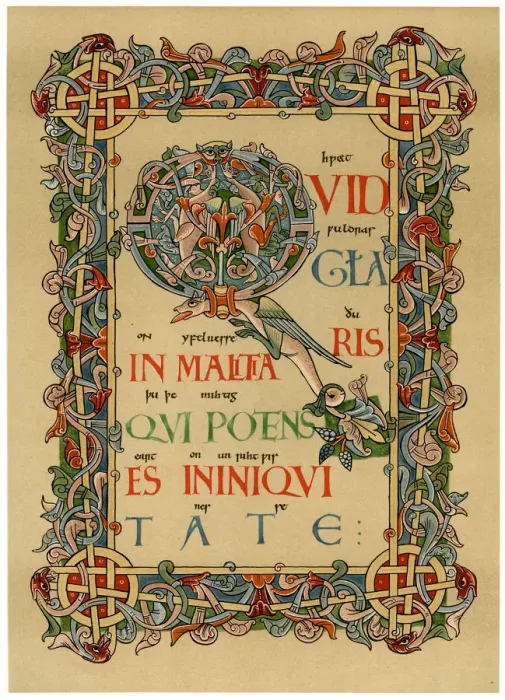 hƿæt
QVID
GŁA
ðu
RIS
on yfelnesse
IN MALITIA
þu þe mihtig
QVI POTENS
eart on un rihtƿis
ES ININIQVI
TATE: